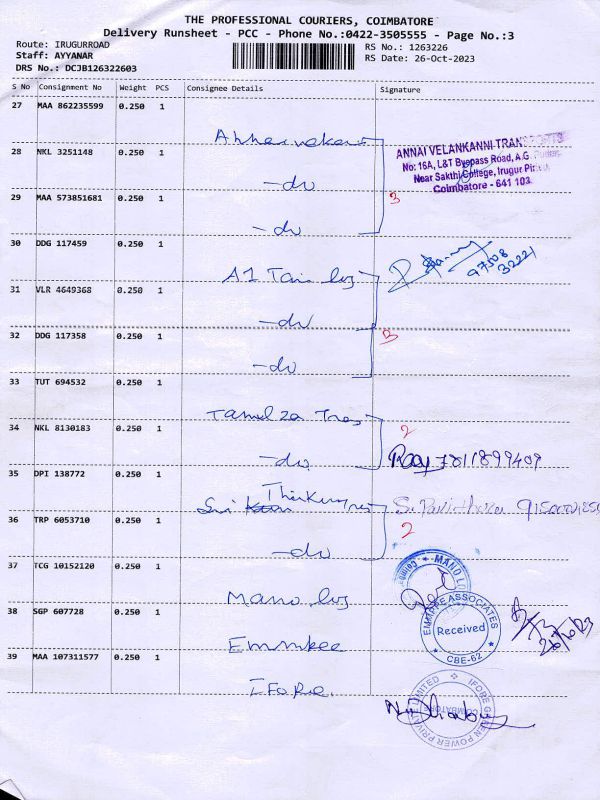 THE PROFESSIONAL COURIERS, COIMBATORE
Delivery Runsheet - PCC - Phone No.:0422-3505555 - Page No.:3
Route: IRUGURROAD
RS No.: 1263226
Staff: AYYANAR
RS Date: 26-Oct-2023
DRS No.: DCJB126322603
S No Consignment No Weight PCS Consignee Details Signature
27 MAA 862235599 0.250 1
ANNAI VELANKANNI TRANSPORTS
No: 16A, L&T Bypass Road, A.G.
Near Sakthi College, Irugur
Coimbatore - 641 103.
28 NKL 3251148 0.250 1
-do
29 MAA 573851681 0.250 1
3
-do
30 DDG 117459 0.250 1
A1
97508
32221
31 VLR 4649368 0.250 1
-do
32 DDG 117358 0.250 1
3
-do
33 TUT 694532 0.250 1
34 NKL 8130183 0.250 1
2
-do
7811899409
35 DPI 138772 0.250 1
Sri
36 TRP 6053710 0.250 1
2
-do
37 TCG 10152120 0.250 1
MANO
Mano
38 SGP 607728 0.250 1
ASSOCIATES
Received
CBE-62
Emmkee
39 MAA 107311577 0.250 1
IFORE GREEN POWER PRIVATE LIMITED
COIMBATORE
IFore